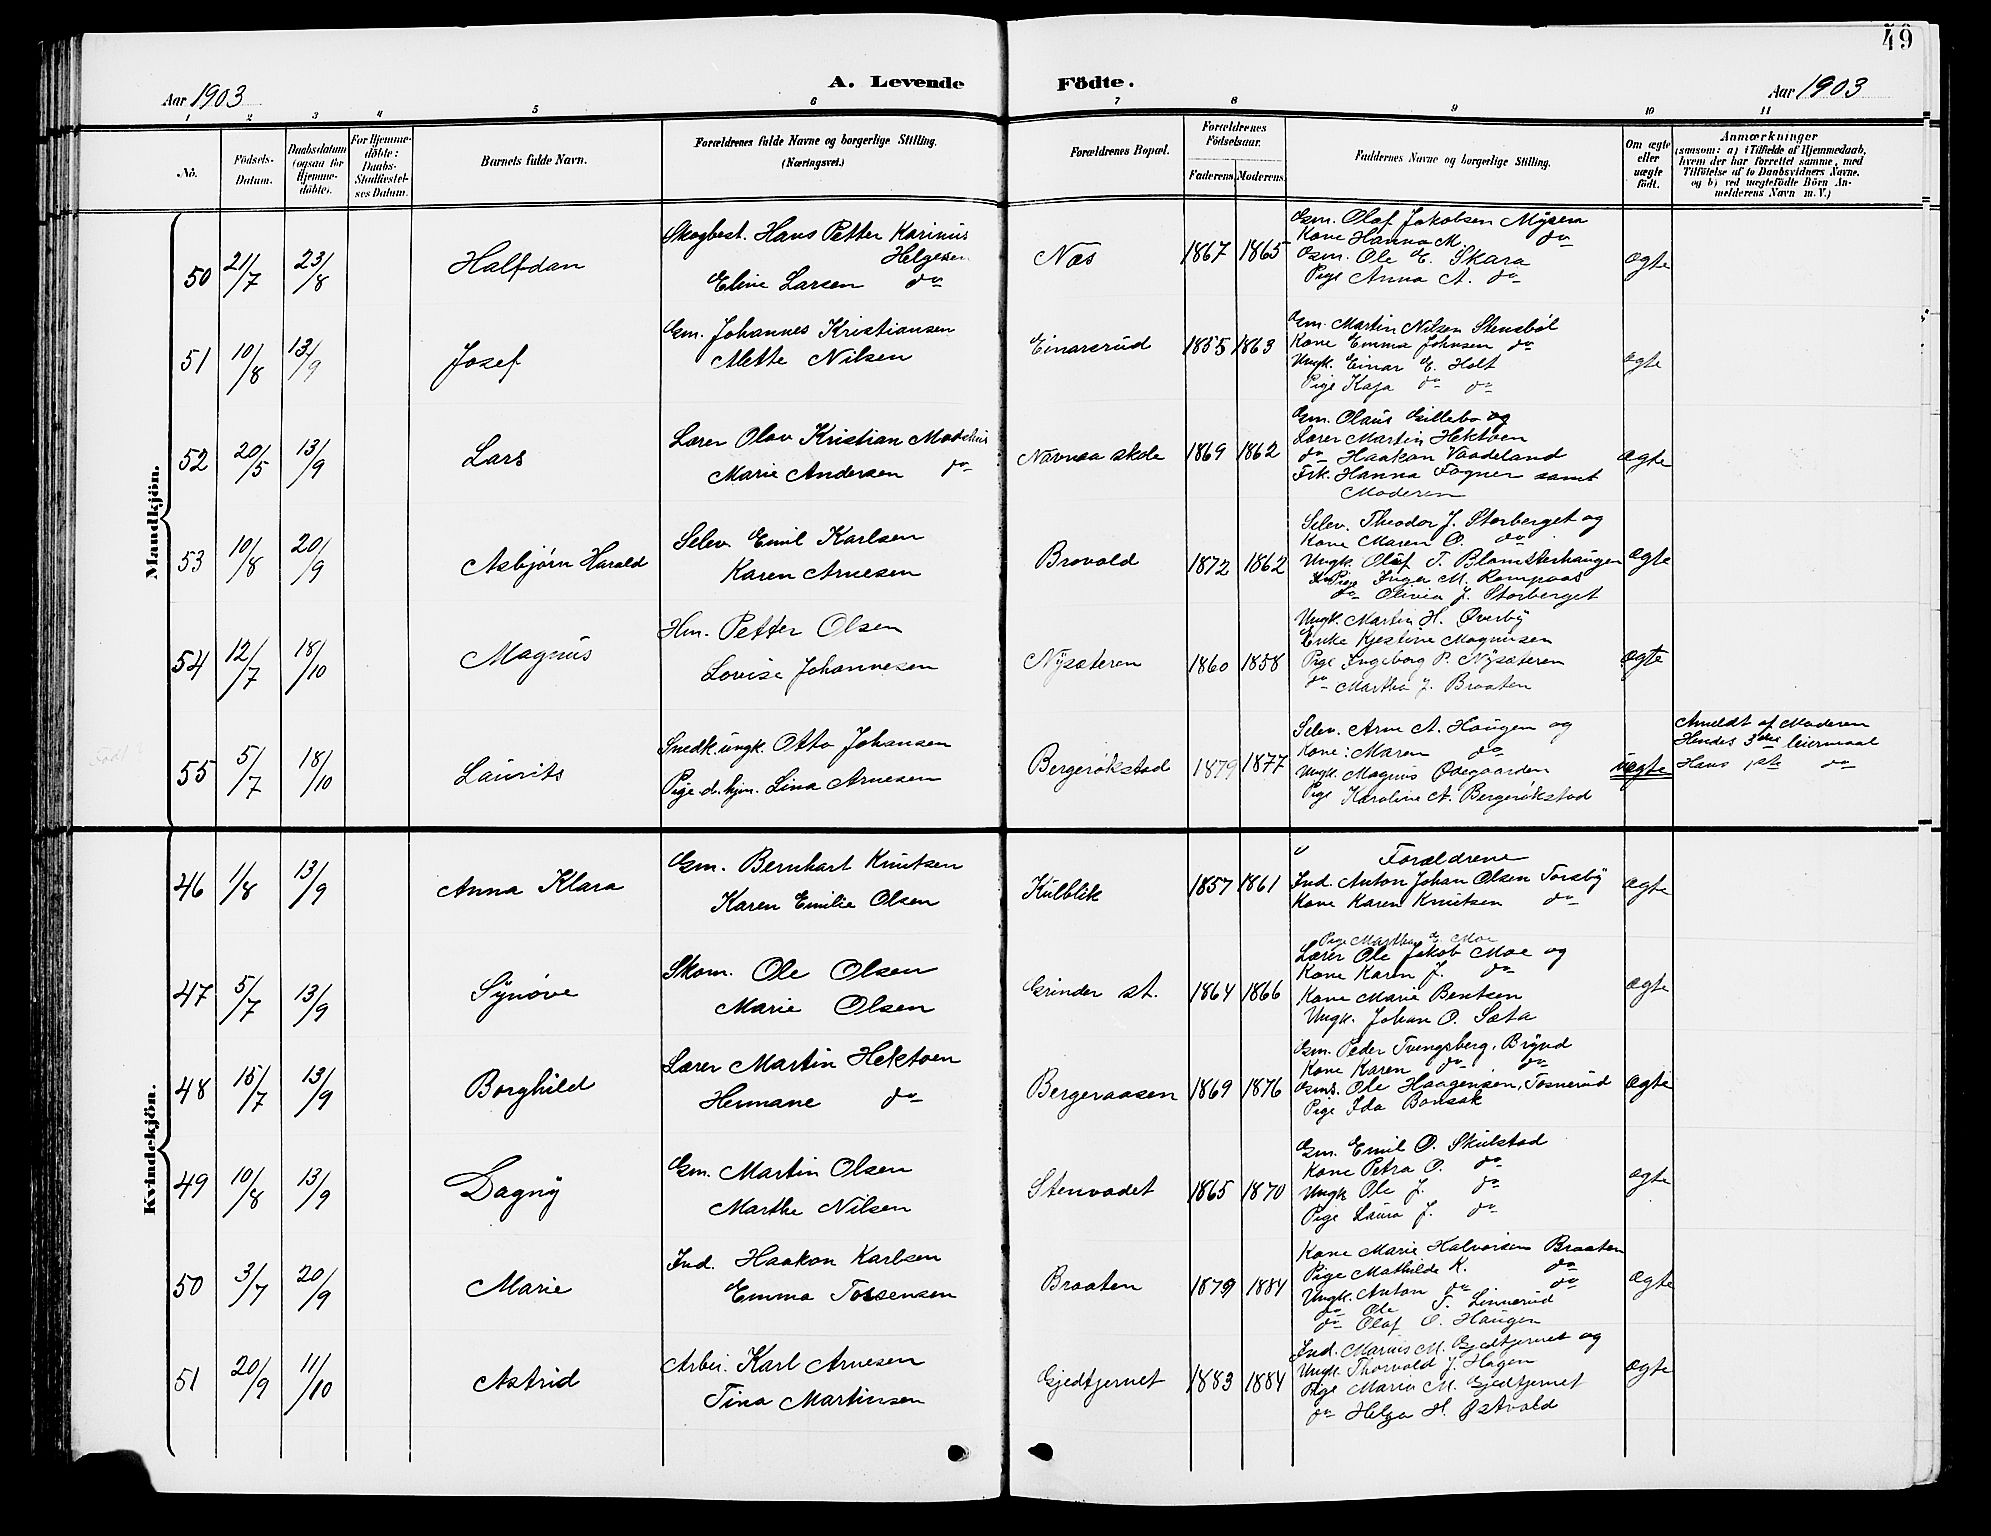 49
A. Levende Födte.
Aar 1903
Aar 1903
1 2 3 4 5 6 7 8 9 10 11
No.
Födsels-Datum.
Daabsdatum (ogsaa for Hjemmedöbte).
For Hjemmedöbte: Daabs-Stadfæstelses Datum.
Barnets fulde Navn.
Forældrenes fulde Navne og borgerlige Stilling. (Næringsvei.)
Forældrenes Bopæl.
Forældrenes Födselsaar.
Faderens. Moderens.
Faddernes Navne og borgerlige Stilling.
Om ægte eller uægte födt.
Anmærkninger
(saasom: a) i Tilfælde af Hjemmedaab, hvem der har forrettet samme, med Tilföielse af to Daabsvidners Navne, og b) ved uægtefödte Börn Anmelderens Navn m. V.)
Mandkjön.
50 21/7 23/8 Halfdan
Skogbest. Hans Petter Karinus Helgesen
Eline Larsen do
Næs 1867 1865
Gm. Olaf Jakobsen Myrem
Kone Hanna M. do
Gm. Ole E. Skara
Pige Anna A. do
ægte
51 10/8 13/9 Josef
Gm. Johannes Kristiansen
Mette Nilsen
Einarsrud 1855 1863
Gm. Martin Nilsen Stensbøl
Kone Emma Johnsen do
Ungk. Einar E. Holt
Pige Kaja do do
ægte
52 20/5 13/9 Lars
Lærer Olav Kristian Modelius
Marie Andersen do
Navnaa skole 1869 1862
Gm. Olaus Gillebo og
Lærer Martin Hektoen
do Haakon Vaadeland
Frk. Hanna Fogner samt
Moderen
ægte
53 10/8 20/9 Asbjørn Harald
Selev. Emil Karlsen
Karen Arnesen
Brovold 1872 1862
Selev. Theodor J. Storberget og
Kone Maren O. do
Ungk. Olaf T. Blomsterhaugen
Pige Inga M. Rompaas
do Olivia J. Storberget
ægte
54 12/7 18/10 Magnus
Hm. Petter Olsen
Lovise Johannesen
Nysæteren 1860 1858
Ungk. Martin H. Øverby
Enke Kjestine Magnusen
Pige Ingeborg P. Nysæteren
do Martha J. Braaten
ægte
55 5/7 18/10 Laurits
Snedk. ungk. Otto Johansen
Pige d. hjm. Lina Arnesen
Bergerøkstad 1879 1877
Selev. Arne A. Haugen og
Kone Maren do
Ungk. Magnus Ødegaarden
Pige Karoline A. Bergerøkstad
uægte
Anmeldt af Moderen
Hendes 3die leiermaal
Hans 1ste do
Kvindekjön.
46 1/8 13/9 Anna Klara
Gm. Bernhart Knutsen
Karen Emilie Olsen
Kulblik 1857 1861
Forældrene
Ind. Anton Johan Olsen Torsby
Kone Karen Knutsen do
ægte
47 5/7 13/9 Synøve
Skom. Ole Olsen
Marie Olsen
Grinder st. 1864 1866
Pige Martha E. Moe
Lærer Ole Jakob Moe og
Kone Karen J. do
Kone Marie Bentsen
Ungk. Johan O. Sæta
ægte
48 15/7 13/9 Borghild
Lærer Martin Hektoen
Hermane do
Bergeraasen 1869 1876
Gm. Peder Tvengsberg, Brynd
Kone Karen do do
Gms. Ole Haagensen, Tosnerud
Pige Ida Bonsak
ægte
49 10/8 13/9 Dagny
Gm. Martin Olsen
Marthe Nilsen
Stenvadet 1865 1870
Gm. Emil O. Skulstad
Kone Petra O. do
Ungk Ole J. do
Pige Laura J. do
ægte
50 3/7 20/9 Marie
Ind. Haakon Karlsen
Emma Torsensen
Braaten 1879 1884
Kone Marie Halvorsen Braaten
Pige Mathilde K. do
Ungk. Anton do do
do Ole T. Linnerud
do Olaf O. Haugen
ægte
51 20/9 11/10 Astrid
Arbei. Karl Arnesen
Tina Martinsen
Gjedtjernet 1883 1884
Ind. Marius M. Gjedtjernet og
Ungk. Thorvald J. Hagen
Pige Maria M. Gjedtjernet
do Helga H. Østvold
ægte